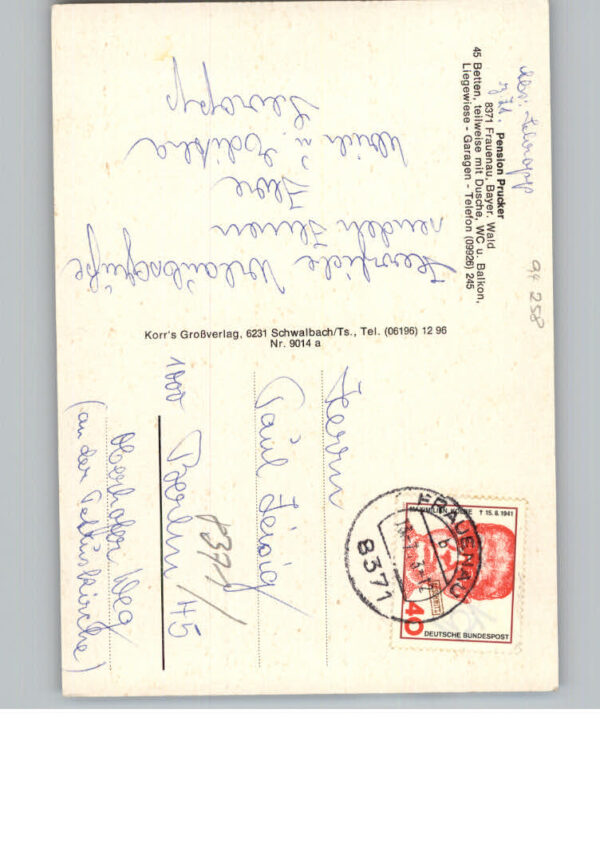 Pension Prucker
8371 Frauenau, Bayer. Wald
45 Betten, teilweise mit Dusche, WC u. Balkon,
Liegewiese - Garagen - Telefon (09926) 245
Herzliche Urlaubsgrüße
senden Ihnen
Ihre
Ulrich u.
94 258
Korr's Großverlag, 6231 Schwalbach/Ts., Tel. (06196) 12 96
Nr. 9014 a
Herrn
Paul
1000 Berlin 45
Oberhofer Weg
(an der Petruskirche)
8371/
MAXIMILIAN KOLBE † 15.8.1941
40
DEUTSCHE BUNDESPOST
FRAUENAU
b
8371